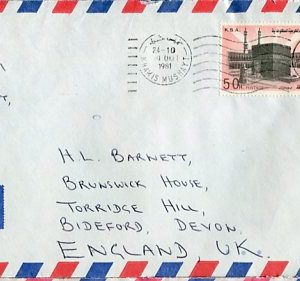 K.S.A.
50
POSTAGE
24-10
1981
KHAMIS MUSHAYT
H.L. BARNETT,
BRUNSWICK HOUSE,
TORRIDGE HILL,
BIDEFORD, DEVON.
ENGLAND, U.K.